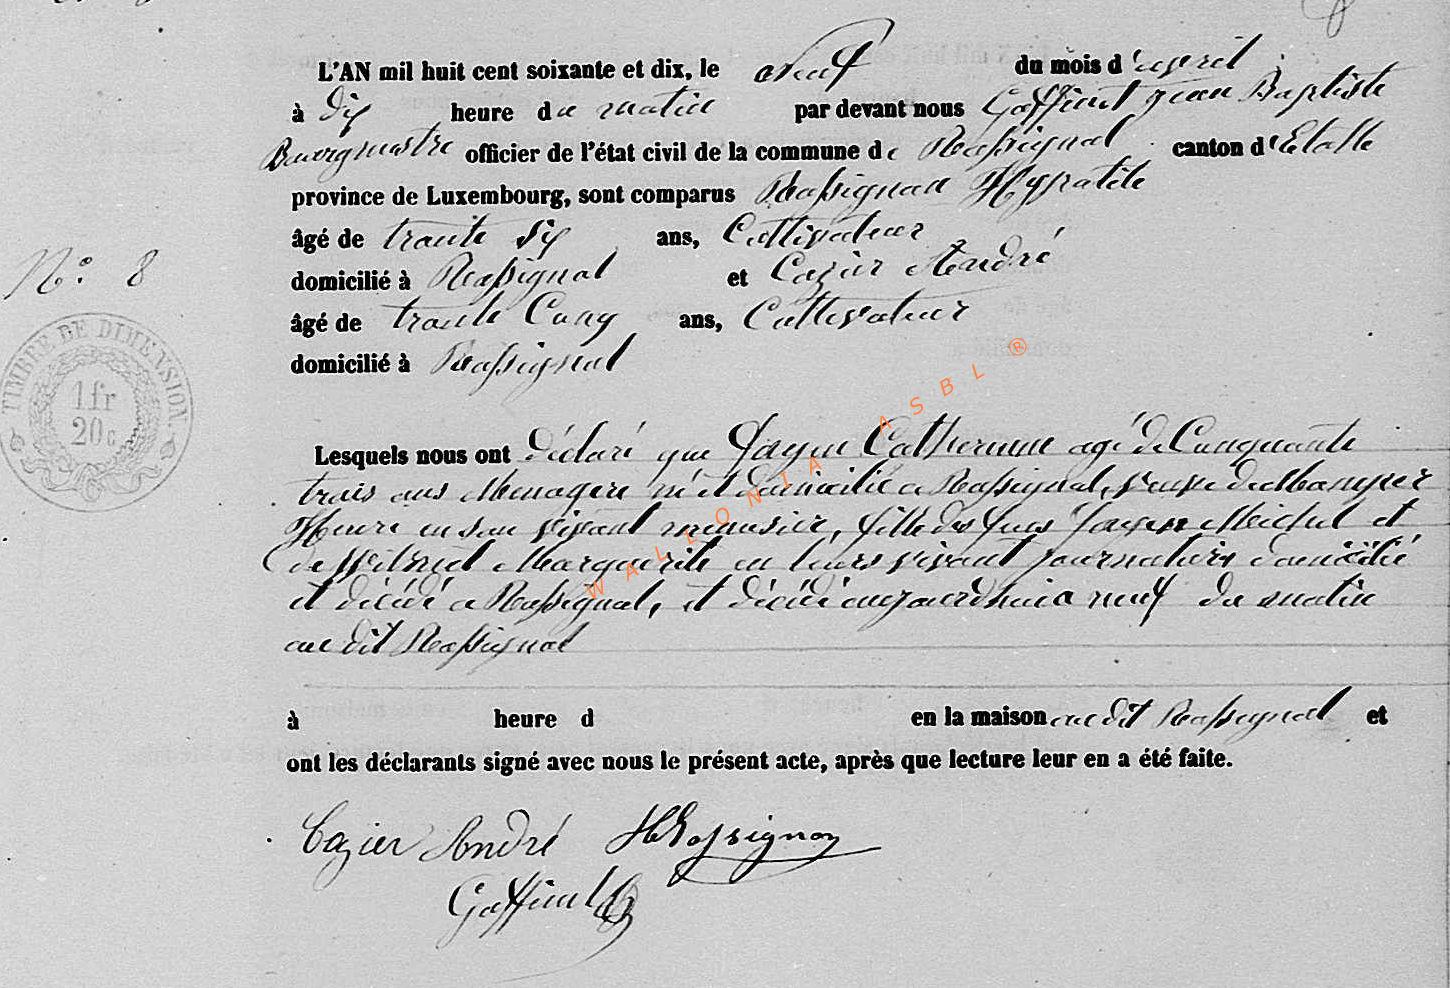 L'AN mil huit cent soixante et dix, le neuf du mois d'avril
à dix heure du matin par devant nous Goffinet Jean Baptiste
Bourgmestre officier de l'état civil de la commune de Rossignol canton d'Etalle
province de Luxembourg, sont comparus Rossignon Hyppolite
âgé de trente six ans, Cultivateur
domicilié à Rossignol et Cozier André
N° 8
âgé de trente Cinq ans, Cultivateur
TIMBRE DE DIMENSION.
1 fr
20 c
domicilié à Rossignol
Lesquels nous ont déclaré que Catherinne agé de Cinquante
trois ans Menagère né et domicilié a Rossignol, veuve de
Henri en son vivant menusier, fille des feus Michel et
de Marguerite en leurs vivant journaliers domicilié
et décédé a Rossignol, et décédé aujourdhui a neuf du matin
au dit Rossignol
à heure d en la maison au dit Rossignol et
ont les déclarants signé avec nous le présent acte, après que lecture leur en a été faite.
Cozier André HRossignon
Goffinet
WALLONIA ASBL ®